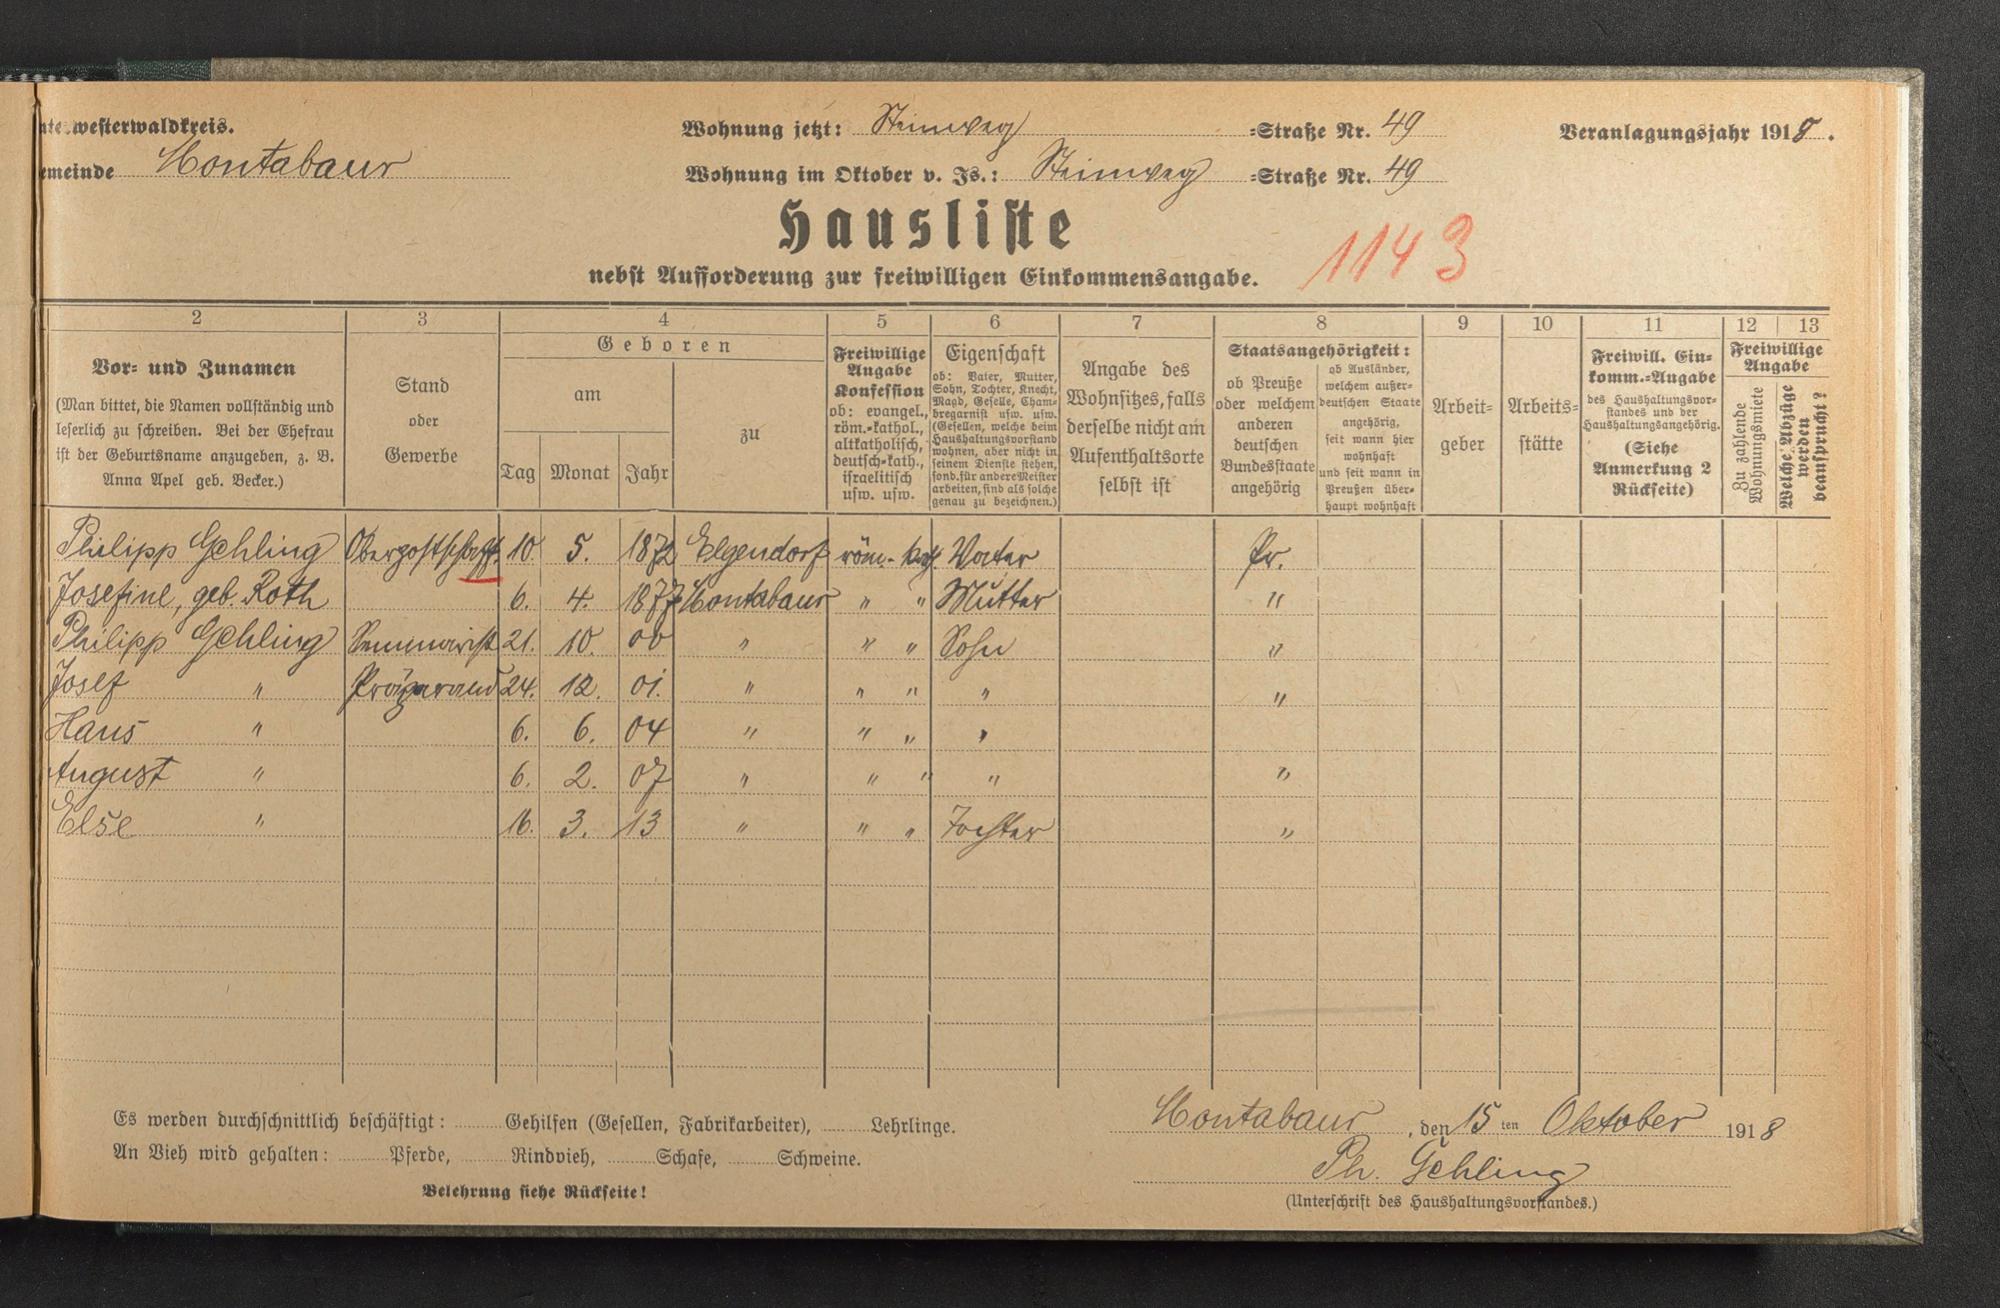 Unterwesterwaldkreis.
Gemeinde Montabaur
Wohnung jetzt: Steinweg =Straße Nr. 49
Wohnung im Oktober v. Js.: Steinweg =Straße Nr. 49
Veranlagungsjahr 1918.
Hausliste
nebst Aufforderung zur freiwilligen Einkommensangabe.
1143
2 3 4 5 6 7 8 9 10 11 12 13
Vor- und Zunamen
(Man bittet, die Namen vollständig und
leserlich zu schreiben. Bei der Ehefrau
ist der Geburtsname anzugeben, z. B.
Anna Apel geb. Becker.)
Stand
oder
Gewerbe
Geboren
am
Tag Monat Jahr
zu
Freiwillige
Angabe
Konfession
ob: evangel.,
röm.-kathol.,
altkatholisch,
deutsch-kath.,
israelitisch
usw. usw.
Eigenschaft
ob: Vater, Mutter,
Sohn, Tochter, Knecht,
Magd, Geselle, Cham-
bregarnist usw. usw.
(Gesellen, welche beim
Haushaltungsvorstand
wohnen, aber nicht in
seinem Dienste stehen,
sond. für andere Meister
arbeiten, sind als solche
genau zu bezeichnen.)
Angabe des
Wohnsitzes, falls
derselbe nicht am
Aufenthaltsorte
selbst ist
Staatsangehörigkeit:
ob Preuße
oder welchem
anderen
deutschen
Bundesstaate
angehörig
ob Ausländer,
welchem außer-
deutschen Staate
angehörig,
seit wann hier
wohnhaft
und seit wann in
Preußen über-
haupt wohnhaft
Arbeit-
geber
Arbeits-
stätte
Freiwill. Ein-
komm.-Angabe
des Haushaltungsvor-
standes und der
Haushaltungsangehörig.
(Siehe
Anmerkung 2
Rückseite)
Freiwillige
Angabe
Zu zahlende
Wohnungsmiete
Welche Abzüge
werden
beansprucht?
Philipp Gehling Oberpostschaff. 10. 5. 1872 Elgendorf röm.-kath. Vater Pr.
Josefine, geb. Roth 6. 4. 1877 Montabaur " " Mutter "
Philipp Gehling Seminarist 21. 10. 00 " " " Sohn "
Josef " Präparand 24. 12. 01. " " " " "
Hans " 6. 6. 04 " " " "
August " 6. 2. 07 " " " " "
Else " 16. 3. 13 " " " Tochter "
Es werden durchschnittlich beschäftigt: Gehilfen (Gesellen, Fabrikarbeiter), Lehrlinge.
An Vieh wird gehalten: Pferde, Rindvieh, Schafe, Schweine.
Belehrung siehe Rückseite!
Montabaur, den 15ten Oktober 1918
Ph. Gehling
(Unterschrift des Haushaltungsvorstandes.)